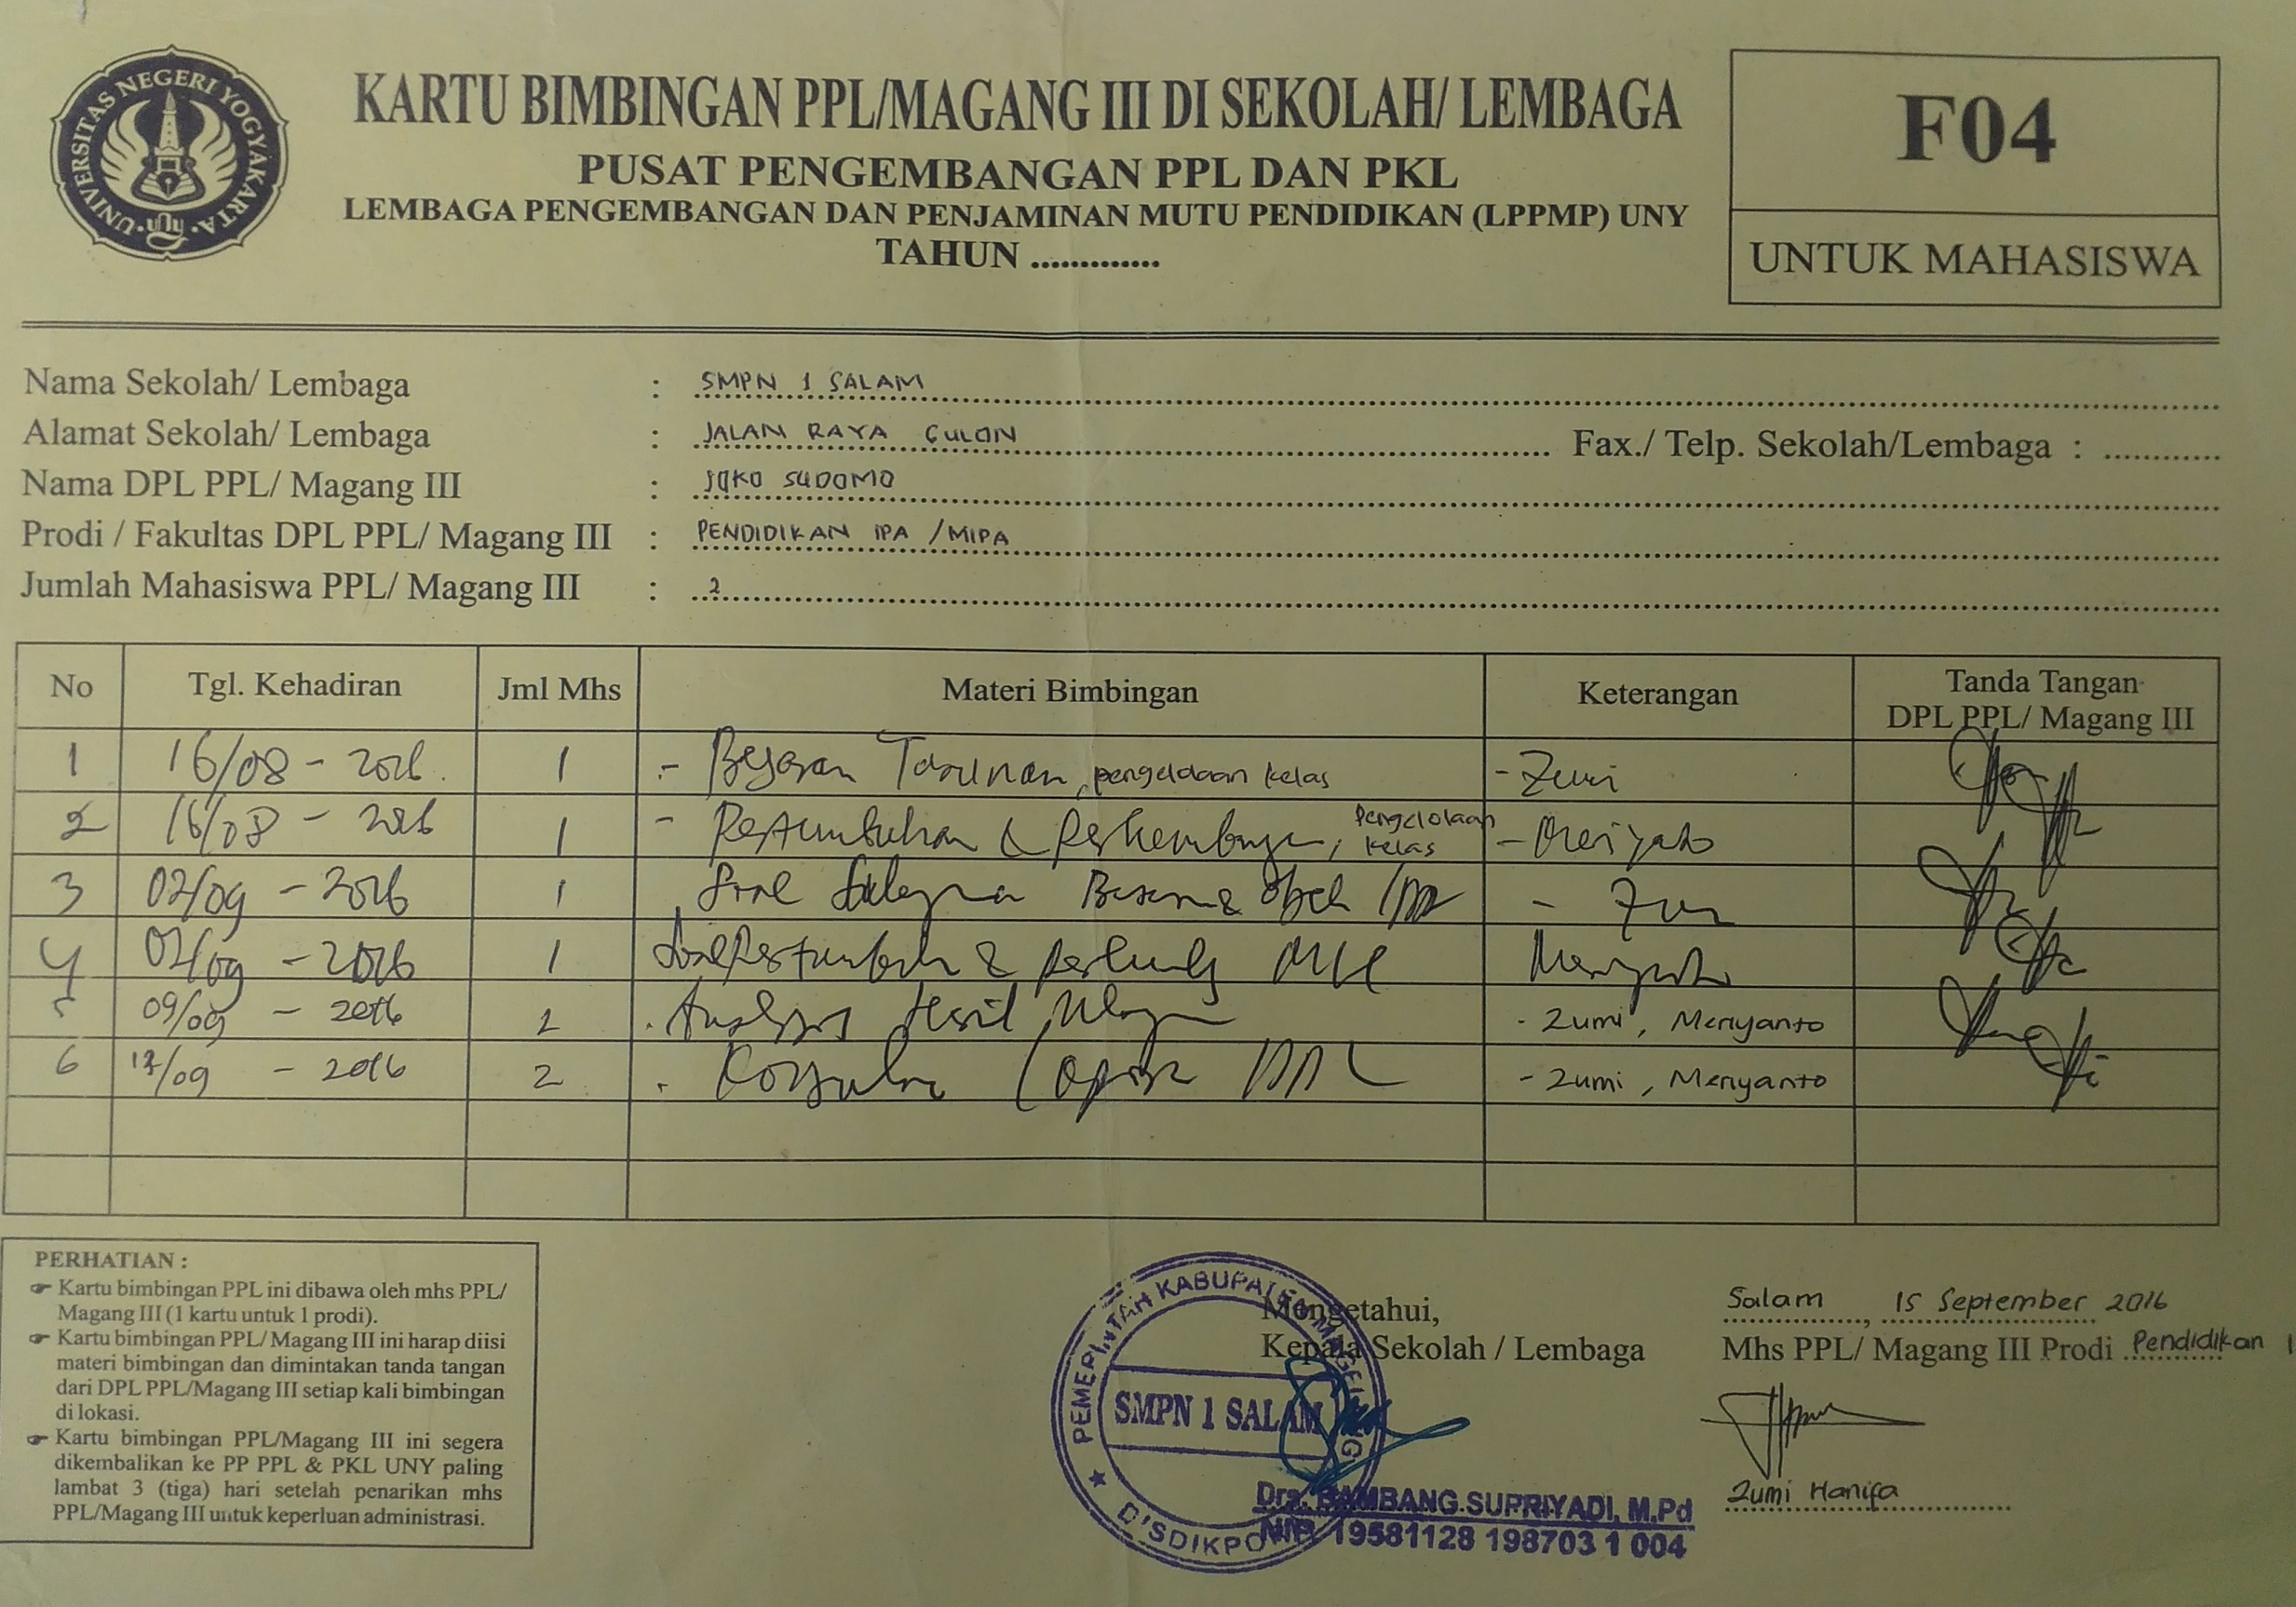 UNIVERSITAS NEGERI YOGYAKARTA
KARTU BIMBINGAN PPL/MAGANG III DI SEKOLAH/ LEMBAGA
PUSAT PENGEMBANGAN PPL DAN PKL
LEMBAGA PENGEMBANGAN DAN PENJAMINAN MUTU PENDIDIKAN (LPPMP) UNY
TAHUN .............
F04
UNTUK MAHASISWA
Nama Sekolah/ Lembaga : SMPN 1 SALAM
Alamat Sekolah/ Lembaga : JALAN RAYA GULON Fax./ Telp. Sekolah/Lembaga : ............
Nama DPL PPL/ Magang III : JOKO SUDOMO
Prodi / Fakultas DPL PPL/ Magang III : PENDIDIKAN IPA /MIPA
Jumlah Mahasiswa PPL/ Magang III : 2
No Tgl. Kehadiran Jml Mhs Materi Bimbingan Keterangan Tanda Tangan
DPL PPL/ Magang III
1 16/08 - 2016 1 - Besaran Turunan, pengelolaan kelas - Zumi
2 16/08 - 2016 1 - Pertumbuhan & Perkembangan, Pengelolaan kelas - Meriyanto
3 02/09 - 2016 1 Soal Besaran &
4 02/09 - 2016 1 Soal Pertumbuhan & Meriyanto
5 09/09 - 2016 2 . Analisis Hasil Ulangan - Zumi, Meriyanto
6 /09 - 2016 2 . PPL - Zumi, Meriyanto
PERHATIAN :
☞ Kartu bimbingan PPL ini dibawa oleh mhs PPL/
Magang III (1 kartu untuk 1 prodi).
☞ Kartu bimbingan PPL/ Magang III ini harap diisi
materi bimbingan dan dimintakan tanda tangan
dari DPL PPL/Magang III setiap kali bimbingan
di lokasi.
☞ Kartu bimbingan PPL/Magang III ini segera
dikembalikan ke PP PPL & PKL UNY paling
lambat 3 (tiga) hari setelah penarikan mhs
PPL/Magang III untuk keperluan administrasi.
Mengetahui,
Kepala Sekolah / Lembaga
PEMERINTAH KABUPATEN MAGELANG
SMPN 1 SALAM
Drs. BAMBANG SUPRIYADI, M.Pd
NIP. 19581128 198703 1 004
Salam, 15 September 2016
Mhs PPL/ Magang III Prodi Pendidikan
Zumi Hanifa